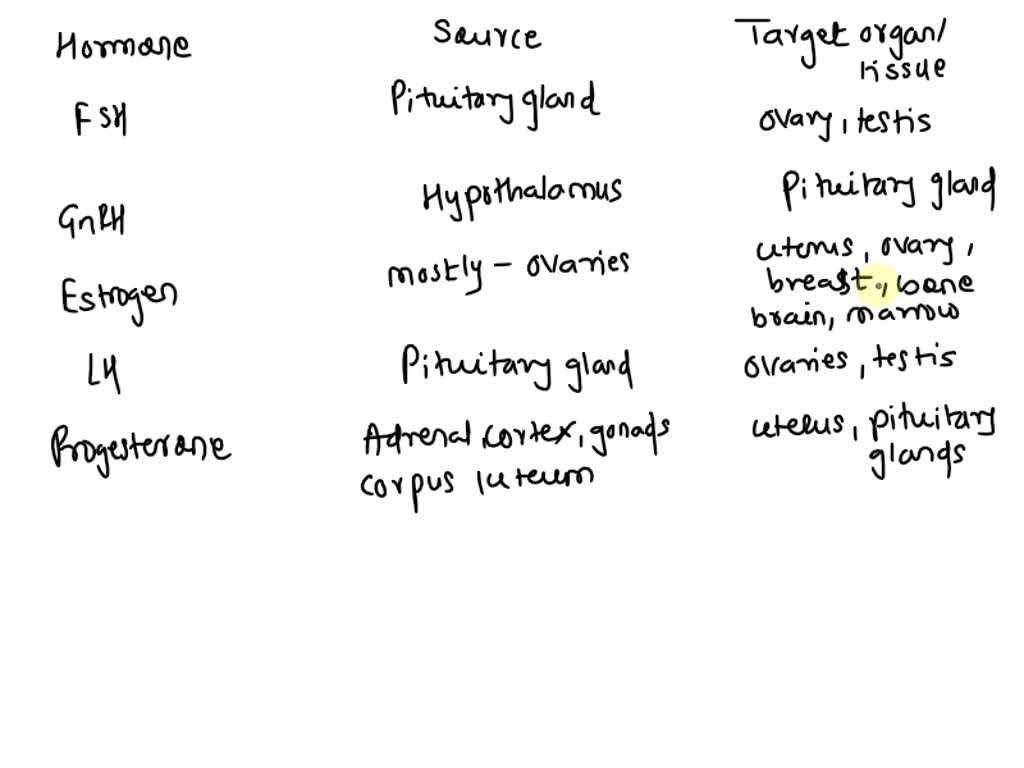 Hormone Source Target organ/
tissue
FSH Pituitary gland ovary, testis
GnRH Hypothalamus Pituitary gland
Estrogen mostly - ovaries uterus, ovary,
breast, bone
brain, marrow
LH Pituitary gland ovaries, testis
Progesterone Adrenal cortex, gonads uterus, pituitary
corpus luteum glands